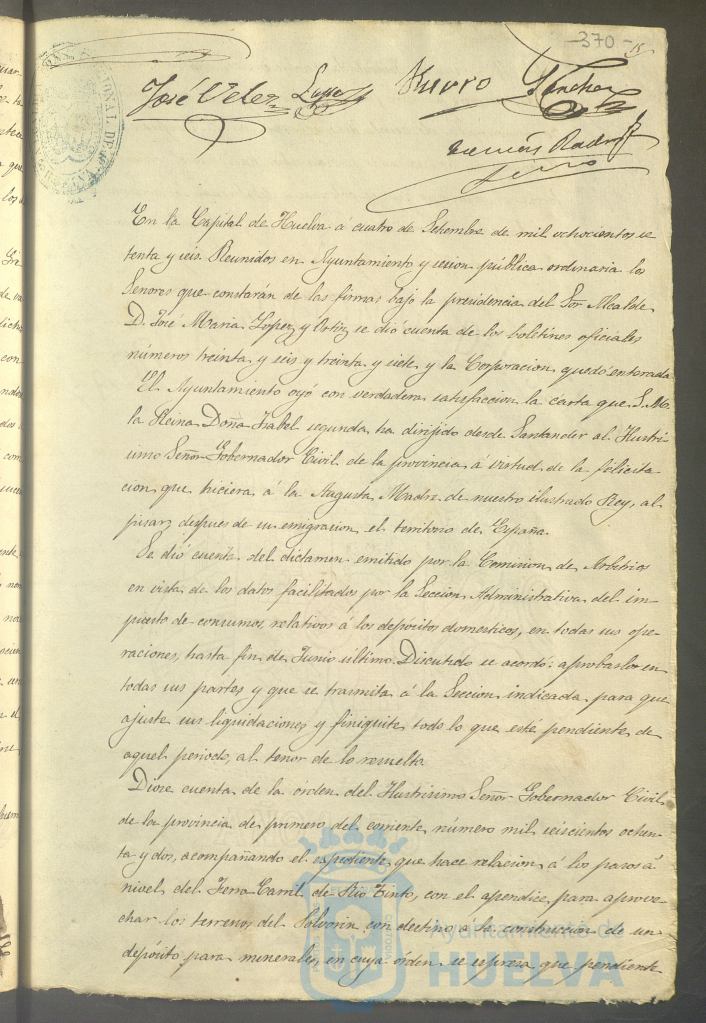 370
José Velez Lopez Kurro Sanchez
En la Capital de Huelva á cuatro de Setiembre de mil ochocientos se
tenta y seis. Reunidos en Ayuntamiento y sesion pública ordinaria los
Señores que constarán de las firmas bajo la presidencia del Sor Alcalde
D. José Maria Lopez y Ortiz se dió cuenta de los boletines oficiales
números treinta y seis y treinta y siete y la Corporacion quedó enterada
El Ayuntamiento oyó con verdadera satisfaccion la carta que S. M.
la Reina Doña Isabel segunda ha dirijido desde Santander al Ilustri-
simo Señor Gobernador Civil de la provincia á virtud de la felicita
cion que hiciera á la Augusta Madre de nuestro ilustrado Rey, al
pisar despues de su emigracion el territorio de España.
Se dió cuenta del dictamen emitido por la Comision de Arbitrios
en vista de los datos facilitados por la Seccion Administrativa del im-
puesto de consumos, relativos á los depósitos domesticos, en todas sus ope-
raciones, hasta fin de Junio último. Discutido se acordó: aprobarlo en
todas sus partes y que se trasmita á la Seccion indicada para que
ajuste sus liquidaciones y finiquite todo lo que esté pendiente de
aquel periodo, al tenor de lo resuelto.
Diose cuenta de la órden del Ilustrisimo Señor Gobernador Civil
de la provincia de primero del corriente número mil seiscientos ochen-
ta y dos, acompañando el espediente que hace relacion á los pasos á
nivel del Ferro Carril de Rio Tinto, con el apendice para aprove
char los terrenos del Polvorin con destino á la construccion de un
depósito para minerales, en cuya órden se espresa que pendiente
Ayuntamiento de
HUELVA